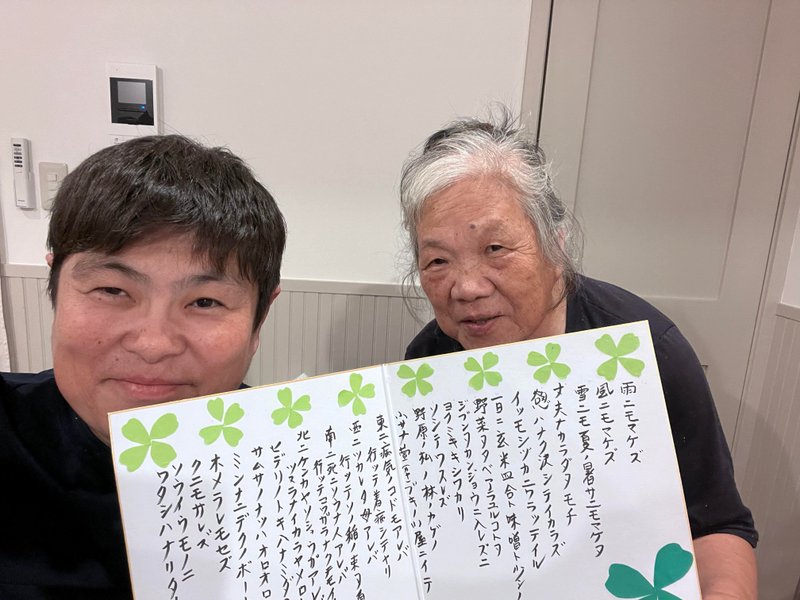 雨ニモマケズ
風ニモマケズ
雪ニモ夏ノ暑サニモマケヌ
丈夫ナカラダヲモチ
慾ハナク決シテイカラズ
イツモシヅカニワラッテイル
一日ニ玄米四合ト味噌ト少シノ
野菜ヲタベアラユルコトヲ
ジブンヲカンジョウニ入レズニ
ヨクミキキシワカリ
ソシテワスレズ
野原ノ松ノ林ノカゲノ
小サナ萱ブキノ小屋ニイテ
東ニ病気ノコドモアレバ
行ッテ看病シテヤリ
西ニツカレタ母アレバ
行ッテソノ稲ノ束ヲ
南ニ死ニソウナ人アレバ
行ッテコワガラナクテモイイ
北ニケンカヤソショウガアレバ
ツマラナイカラヤメロ
ヒデリノトキハナミダ
サムサノナツハオロオロ
ミンナニデクノボー
ホメラレモセズ
クニモサレズ
ソウイウモノニ
ワタシハナリタ